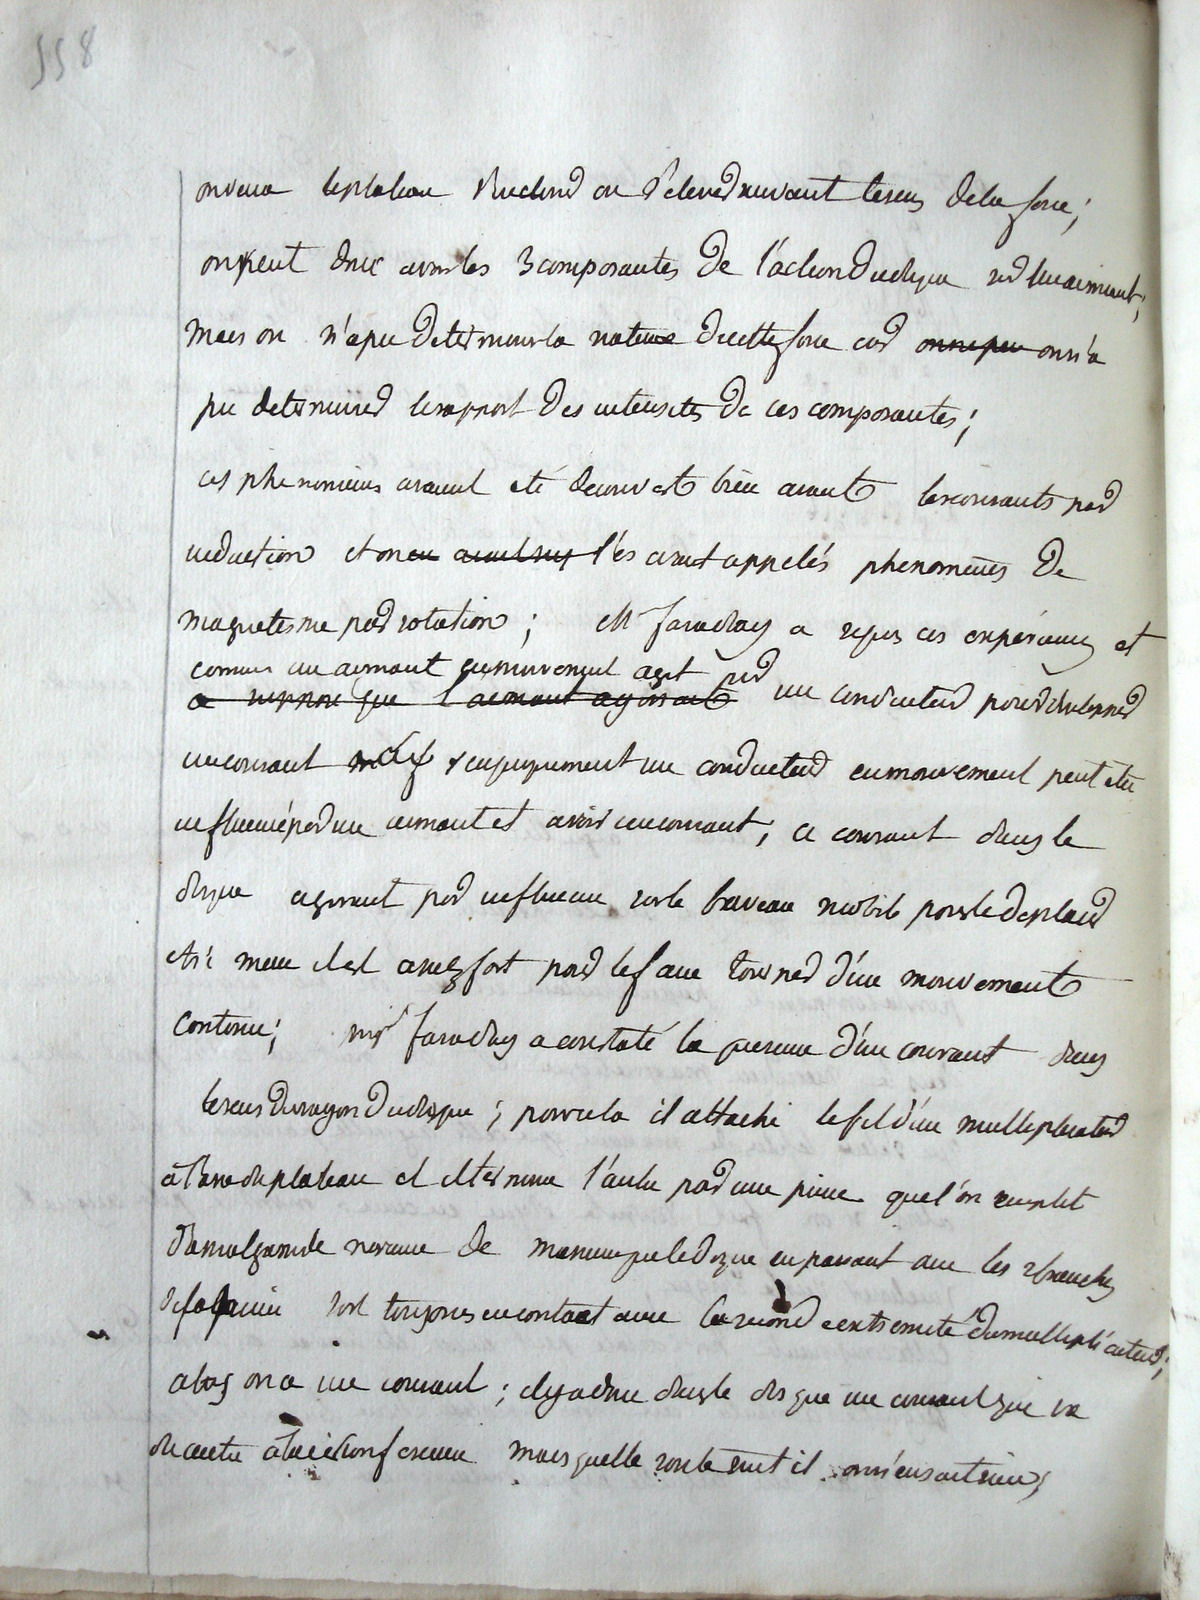 558
on verra le plateau s'incliner ou s'elever suivant le sens de la force;
on peut donc avoir les 3 composantes de l'action du disque sur l'aimant;
mais on n'a pu determiner la nature de cette force car on ne peu on n'a
pu determiner le rapport des intensités de ces composantes;
ces phenomènes avaient eté decouverts bien avant les courants par
induction et on en avait les avait appelés phenomènes de
magnetisme par rotation; Mr faraday a repris ces expériences et
comme un aimant en mouvement agit sur
a supposé que l'aimant agissait un conducteur pour developper
un courant reciproquement un conducteur en mouvement peut etre
influencé par un aimant et avoir un courant; ce courant dans le
disque agissant par influence sur le barreau mobile pour le deplacer
et si meme il est assez fort pour le faire tourner d'un mouvement
continu; mr faraday a constaté la presence d'un courant dans
le sens du rayon du disque; pour cela il attache le fil d'un multiplicateur
à l'axe du plateau et il termine l'autre par une pince que l'on enduit
d'amalgame de maniere que le disque en passant avec les 2 branches
de la pince soit toujours en contact avec la seconde extremité du multiplicateur;
alors on a un courant; il y a donc dans le disque un courant qui va
du centre à la circonference mais quelle route suit il on n'en sait rien;